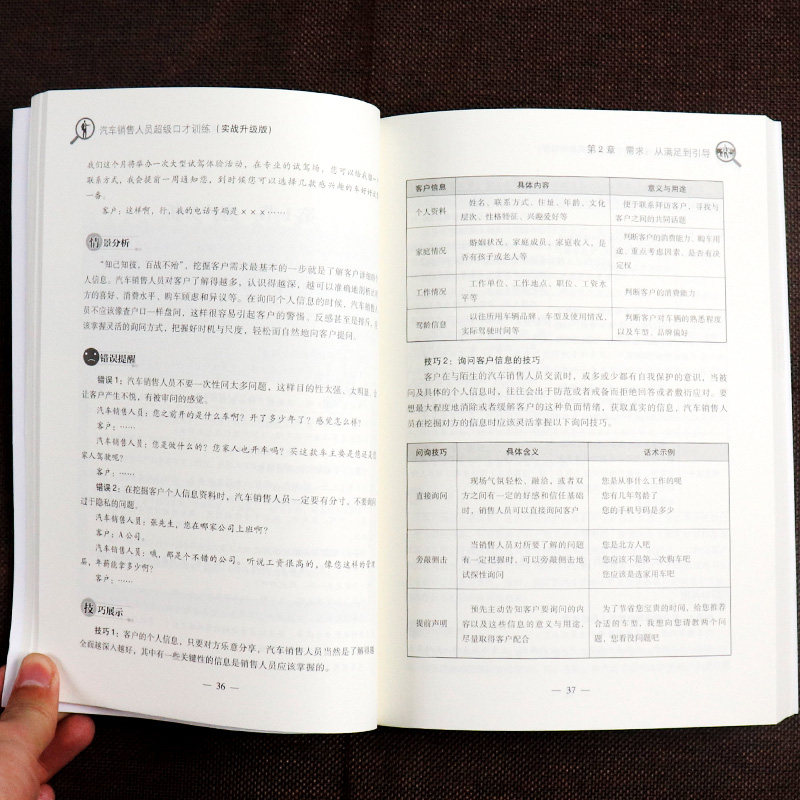 汽车销售人员超级口才训练（实战升级版）
我们这个月将举办一次大型试驾体验活动，在专业的试驾场，您可以给我留一
联系方式，我会提前一周通知您，到时候您可以选择几款感兴趣的车好好试
一番。
客户：这样啊，行，我的电话号码是×××……
情景分析
“知己知彼，百战不殆”，挖掘客户需求最基本的一步就是了解客户详细的
人信息。汽车销售人员对客户了解得越多，认识得越深，越可以准确地剖析
方的喜好、消费水平、购车顾虑和异议等。在询问个人信息的时候，汽车销售人
员不应该像查户口一样盘问，这样很容易引起客户的警惕、反感甚至是排斥，
该掌握灵活的询问方式，把握好时机与尺度，轻松而自然地向客户提问。
错误提醒
错误1：汽车销售人员不要一次性问太多问题，这样目的性太强、太明显，会
让客户产生不悦，有被审问的感觉。
汽车销售人员：您之前开的是什么车啊？开了多少年了？感觉怎么样？
客户：……
汽车销售人员：您是做什么的？您家人也开车吗？买这款车主要是您还是
家人驾驶呢？
客户：……
错误2：在挖掘客户个人信息资料时，汽车销售人员一定要有分寸，不要询问
过于隐私的问题。
汽车销售人员：张先生，您在哪家公司上班啊？
客户：A公司。
汽车销售人员：哦，那是个不错的公司。听说工资很高的，像您这样的管理
层，年薪能拿多少啊？
客户：……
技巧展示
技巧1：客户的个人信息，只要对方乐意分享，汽车销售人员当然是了解得越
全面越深入越好，其中有一些关键性的信息是销售人员应该掌握的。
— 36 —
第2章 需求：从满足到引导
客户信息 具体内容 意义与用途
个人资料 姓名、联系方式、住址、年龄、文化 便于联系拜访客户，寻找与
层次、性格特征、兴趣爱好等 客户之间的共同话题
家庭情况 婚姻状况、家庭成员、家庭收入，是 判断客户的消费能力、购车用
否有孩子或老人等 途、重点考虑因素、是否有决
定权
工作情况 工作单位、工作地点、职位、工资水 判断客户的消费能力
平等
驾龄信息 以往所用车辆品牌、车型及使用情况， 判断客户对车辆的熟悉程度
实际驾驶时间等 以及车型、品牌偏好
技巧2：询问客户信息的技巧
客户在与陌生的汽车销售人员交流时，或多或少都有自我保护的意识，当被
问及具体的个人信息时，往往会出于防范或者戒备而拒绝回答或者敷衍应对。要
想最大程度地消除或者缓解客户的这种负面情绪，获取真实的信息，汽车销售人
员在挖掘对方的信息时应该灵活掌握以下询问技巧。
问询技巧 具体含义 话术示例
直接询问 现场气氛轻松、融洽，或者双 您是从事什么工作的呢
方之间有一定的好感和信任基础 您有几年驾龄了
时，销售人员可以直接询问客户 您的手机号码是多少
旁敲侧击 当销售人员对所要了解的问题 您是北方人吧
有一定把握时，可以旁敲侧击地 您应该不是第一次购车吧
试探性询问 您应该是选家用车吧
提前声明 预先主动告知客户要询问的内 为了节省您宝贵的时间，给您推荐
容以及这些信息的意义与用途， 合适的车型，我想向您请教两个问
尽量取得客户配合 题，您看没问题吧
— 37 —